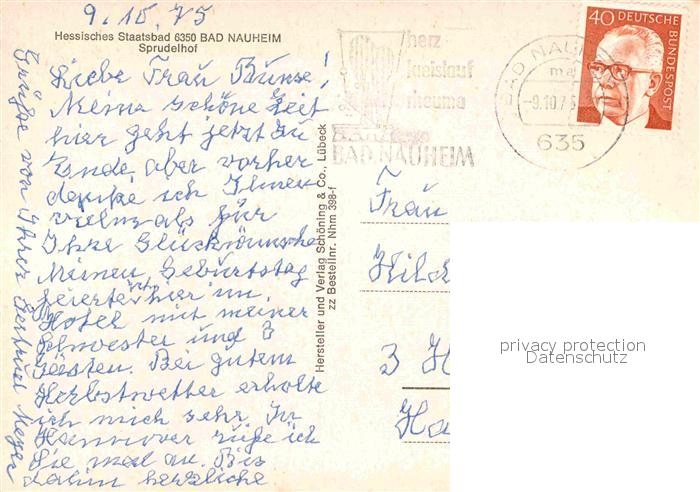 9.10.75
Hessisches Staatsbad 6350 BAD NAUHEIM
Sprudelhof
Liebe Frau Bunse!
Meine schöne Zeit
hier geht jetzt zu
Ende, aber vorher
danke ich Ihnen
vielmals für
Ihre Glückwünsche
Meinen Geburtstag
feierten wir hier im
Hotel mit meiner
Schwester und 3
Gästen. Bei gutem
Herbstwetter erholte
ich mich sehr. In
Hannover rufe ich
Sie mal an. Bis
dahin herzliche
Grüße von Ihrer Gertrud Meyer
Hersteller und Verlag Schöning & Co., Lübeck
zz Bestellnr. Nhm 398-f
herz
kreislauf
rheuma
BAD NAUHEIM
BAD NAUHEIM
-9.10.75
635
40 DEUTSCHE BUNDESPOST
Frau
Hild
3 H
Ha
privacy protection
Datenschutz